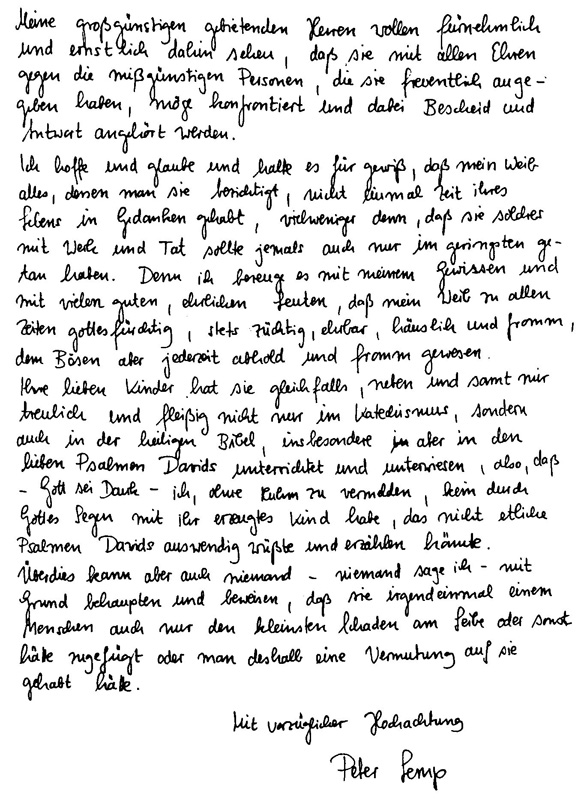 Meine großgünstigen gebietenden Herren wollen fürnehmlich
und ernstlich dahin sehen, daß sie mit allen Ehren
gegen die mißgünstigen Personen, die sie freventlich ange-
geben haben, möge konfrontiert und dabei Bescheid und
Antwort angehört werden.
Ich hoffe und glaube und halte es für gewiß, daß mein Weib
alles, dessen man sie berichtigt, nicht einmal Zeit ihres
Lebens in Gedanken gehabt, vielweniger denn, daß sie solches
mit Werk und Tat sollte jemals auch nur im geringsten ge-
tan haben. Denn ich bezeuge es mit meinem Gewissen und
mit vielen guten, ehrlichen Leuten, daß mein Weib zu allen
Zeiten gottesfürchtig, stets züchtig, ehrbar, häuslich und fromm,
dem Bösen aber jederzeit abhold und fromm gewesen.
Ihre lieben Kinder hat sie gleichfalls, neben und samt mir
treulich und fleißig nicht nur im Katechismus, sondern
auch in der heiligen Bibel, insbesondere aber in den
lieben Psalmen Davids unterrichtet und unterwiesen, also, daß
- Gott sei Dank - ich, ohne Ruhm zu vermelden, kein durch
Gottes Segen mit ihr erzeugtes Kind habe, das nicht etliche
Psalmen Davids auswendig wüßte und erzählen könnte.
Überdies kann aber auch niemand - niemand sage ich - mit
Grund behaupten und beweisen, daß sie irgendeinmal einem
Menschen auch nur den kleinsten Schaden am Leibe oder sonst
hätte zugefügt oder man deshalb eine Vermutung auf sie
gehabt hätte.
Mit vorzüglicher Hochachtung
Peter Lemp